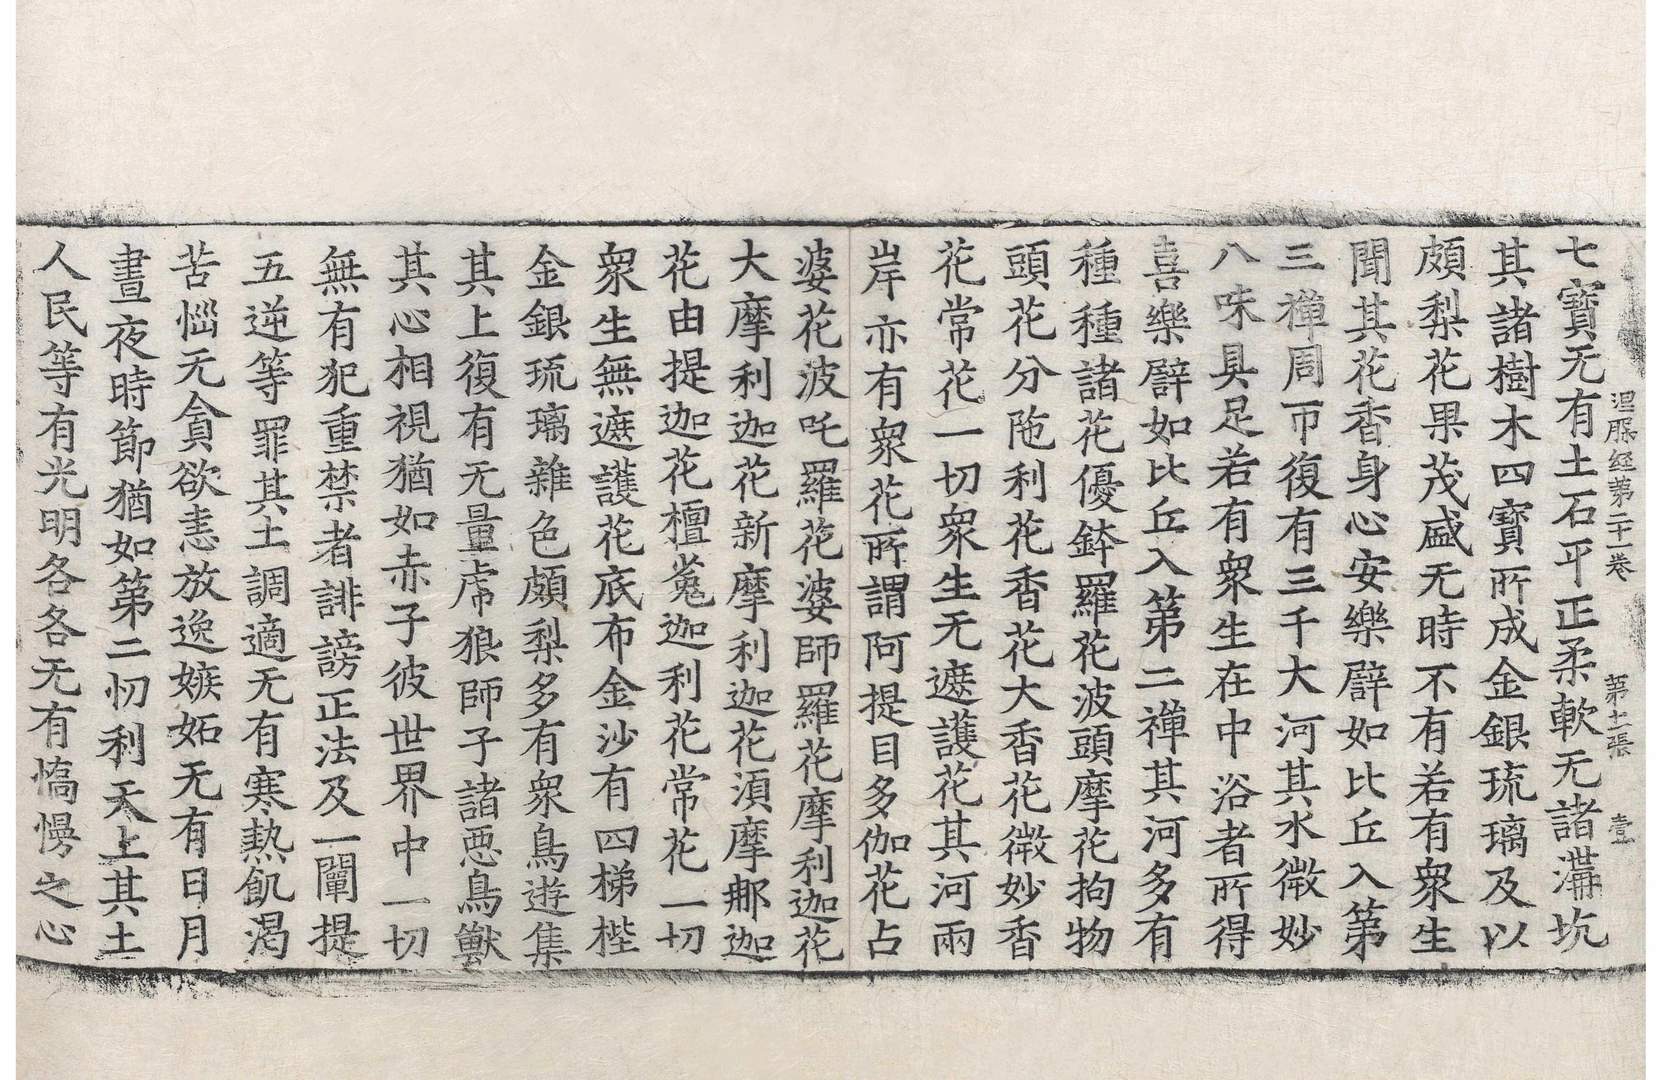 涅槃経第二十一卷 第十二張 壹
七寶无有土石平正柔軟无諸溝坑
其諸樹木四寶所成金銀琉璃及以
頗梨花果茂盛无時不有若有衆生
聞其花香身心安樂譬如比丘入第
三禪周帀復有三千大河其水微妙
八味具足若有衆生在中浴者所得
喜樂譬如比丘入第二禪其河多有
種種諸花優鉢羅花波頭摩花拘物
頭花分陁利花香花大香花微妙香
花常花一切衆生无遮護花其河兩
岸亦有衆花所謂阿提目多伽花占
婆花波吒羅花婆師羅花摩利迦花
大摩利迦花新摩利迦花湏摩那迦
花由提迦花檀㝹迦利花常花一切
衆生無遮護花底布金沙有四梯橙
金銀琉璃雜色頗梨多有衆鳥遊集
其上復有无量虎狼師子諸惡鳥獸
其心相視猶如赤子彼世界中一切
無有犯重禁者誹謗正法及一闡提
五逆等罪其土調適无有寒熱飢渴
苦惱无貪欲恚放逸嫉妬无有日月
晝夜時節猶如第二忉利天上其土
人民等有光明各各无有憍慢之心